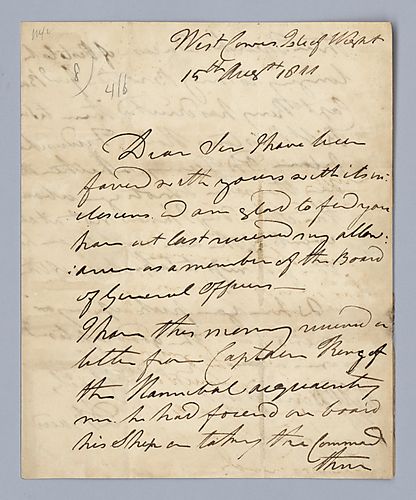 8
4/6
West Cowes Isle of Wight
15th Augst 1811
Dear Sir I have been
favored with yours with its in:
closures, and am glad to find you
have at last received my allow:
:ance as a member of the Board
of General Officers —
I have this morning received a
letter from Captain King of
the Hannibal acquainting
me he had found on board
his Ship on taking the Command